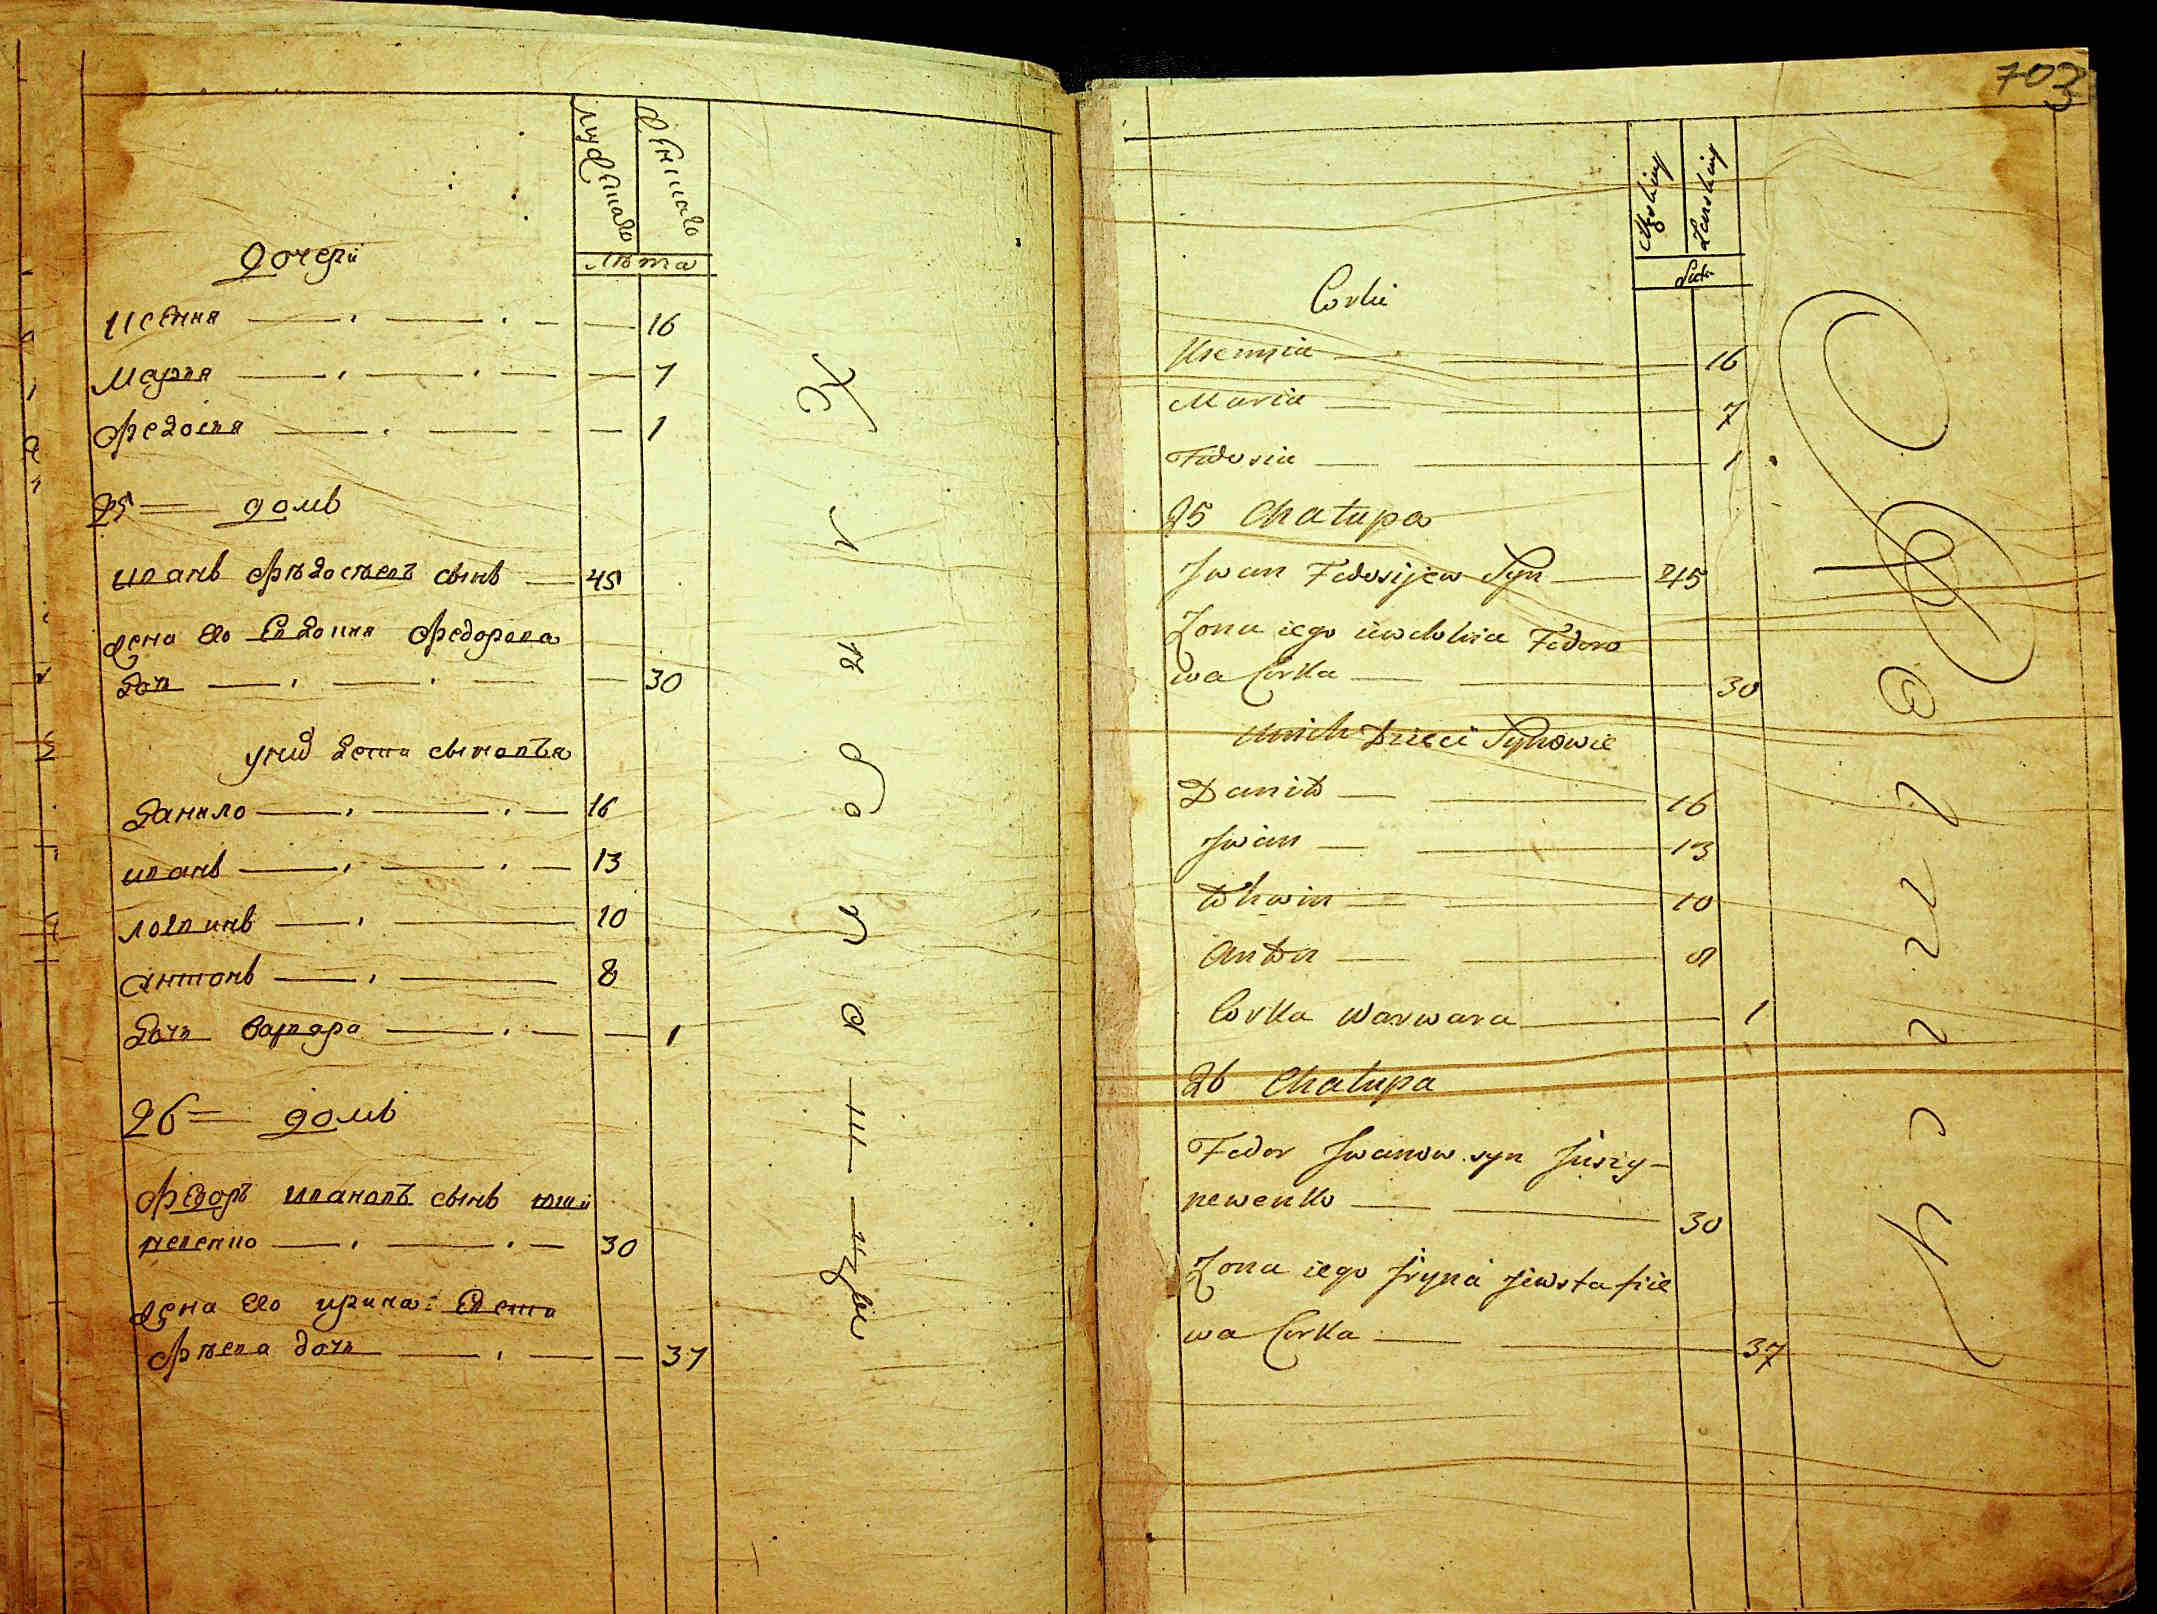 мужеска
женска
лѣта
дочери
ксенія 16
марья 7
федосья 1
25 домъ
иванъ федосѣевъ сынъ 45
жена его евдокия федорова
дочь 30
у них дети сыновья
данило 16
иванъ 13
логвинъ 10
антонъ 8
дочь варвара 1
26 домъ
федоръ ивановъ сынъ юши
пенко 30
жена его ирина евста
фѣева дочь 37
703
Męskiey
Zenskiey
Lat
Corki
Ksennia 16
Maria 7
Fedosia 1
25 Chałupa
Jwan Fedosijew Syn 45
Zona iego iewdokia Fedoro
wa Corka 30
unich Dzieci Synowie
Daniło 16
Jwan 13
Anton 8
Corka Warwara 1
26 Chałupa
Fedor Jwanow syn
30
Zona iego Jryna Jewstafie
wa Corka 37